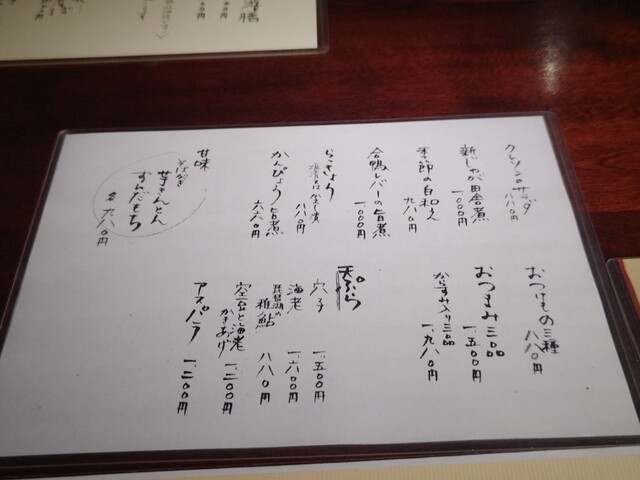 クレソンのサラダ
八八〇円
新じゃが田舎煮
一〇〇〇円
季節の白和え
九八〇円
合鴨レバーの旨煮
一〇〇〇円
らっきょう
八八〇円
かんぴょう旨煮
六六〇円
甘味
そばがき
芋きんとん
ずんだもち
各九八〇円
おつけもの三種
八八〇円
おつまみ三品
一、五〇〇円
からすみ入り三品
一、九八〇円
天ぷら
穴子
一、五〇〇円
海老
一、六〇〇円
琵琶湖の
稚鮎
八八〇円
空豆と海老
かきあげ
一、二〇〇円
アスパラ
一、二〇〇円